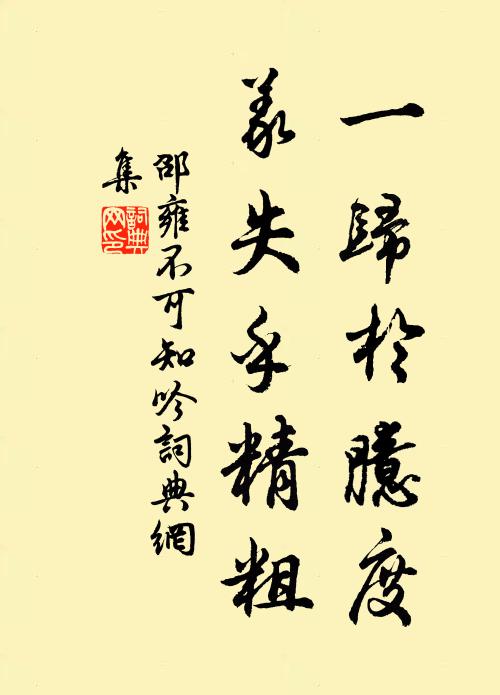 一歸於臆度
義失乎精粗
邵雍不可知吟詞典網
集
詞典网印